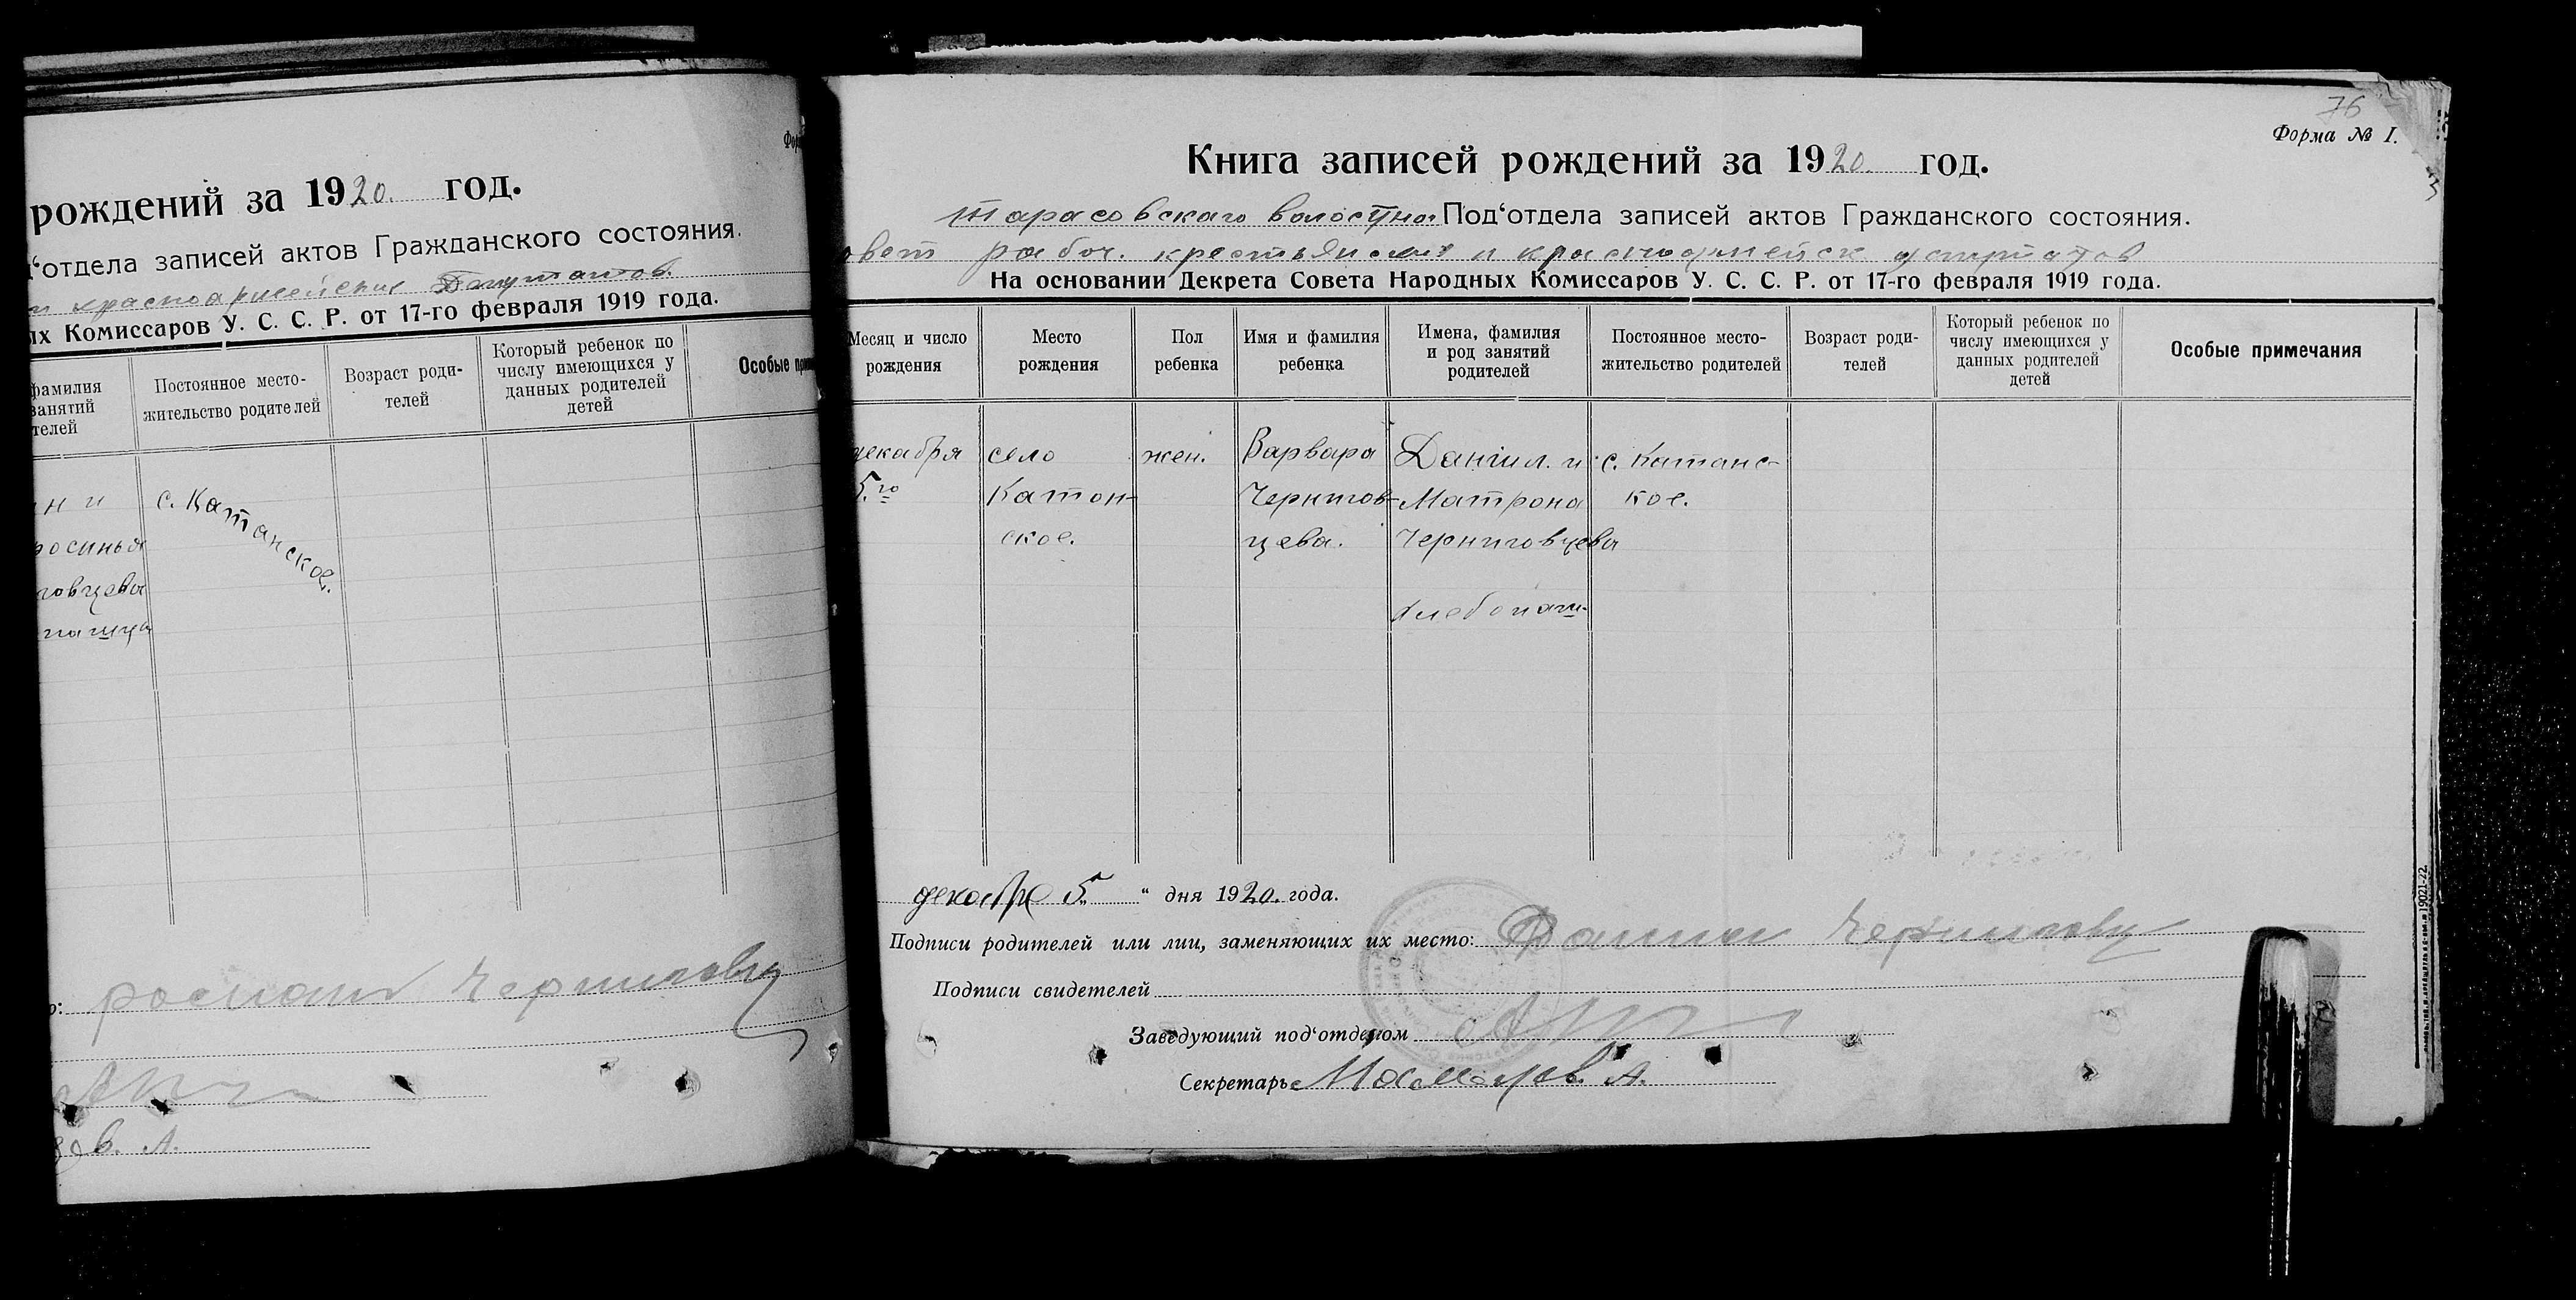 рождений за 1920. год.
отдела записей актов Гражданского состояния.
и красноармейских Депутатов.
ых Комиссаров У. С. С. Р. от 17-го февраля 1919 года.
фамилия
занятий
телей
Постоянное место-
жительство родителей
Возраст роди-
телей
Который ребенок по
числу имеющихся у
данных родителей
детей
Особые
с. Катанское.
ни
росинья
говцевы
пашцы
Черниговц
в. А.
76
Форма № I.
Книга записей рождений за 1920. год.
Тарасовскаго волостно Под‘отдела записей актов Гражданского состояния.
овет рабоч. крестьянских и красноармейск депутатов
На основании Декрета Совета Народных Комиссаров У. С. С. Р. от 17-го февраля 1919 года.
Месяц и число
рождения
Место
рождения
Пол
ребенка
Имя и фамилия
ребенка
Имена, фамилия
и род занятий
родителей
Постоянное место-
жительство родителей
Возраст роди-
телей
Который ребенок по
числу имеющихся у
данных родителей
детей
Особые примечания
декабря
5.го
село
Катон-
ское.
жен.
Варвара
Чернигов-
цева.
Даніил. и
Матрона
Черниговцевы
хлебопаш-
с. Катанс-
кое.
декабре 5 “ дня 1920. года.
Подписи родителей или лиц, заменяющих их место: Черниговц
Подписи свидетелей
Заведующий под‘отделом
Секретарь А.
19021-22